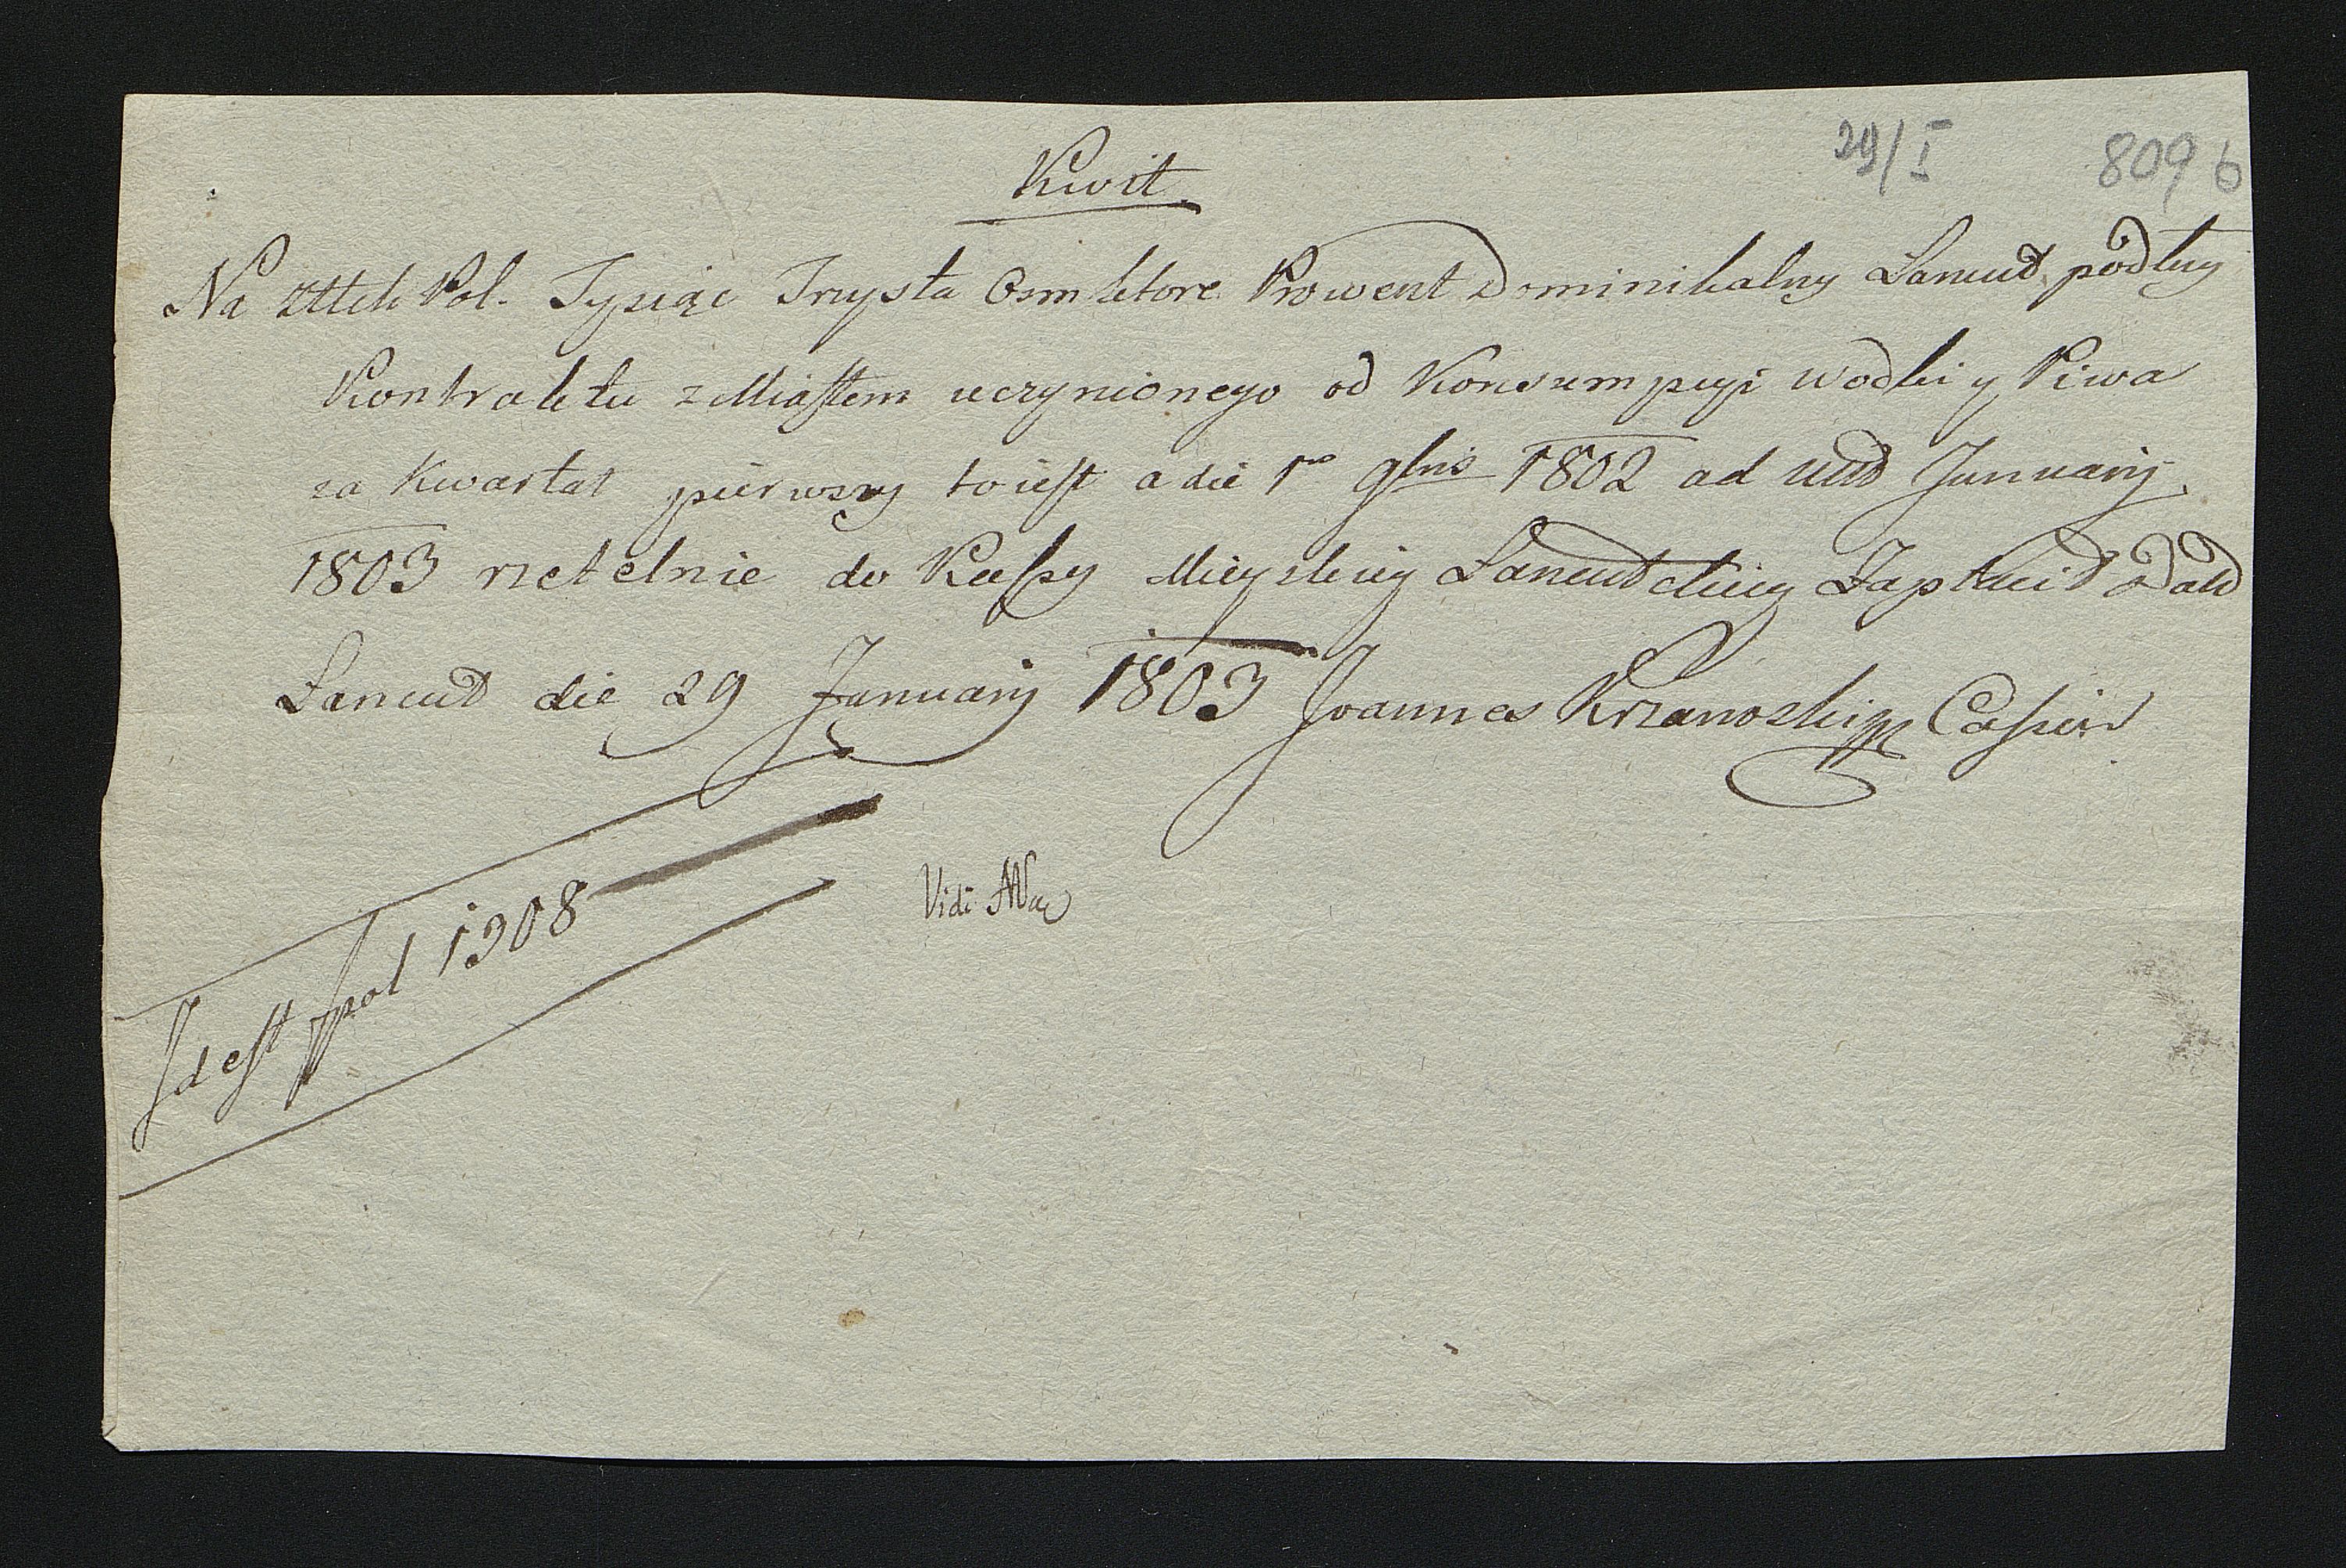 29/I 809 6
Kwit
Na Złłch Pol. Tysiąc Trzysta Osm ktore Prowent Dominikalny Lancud podług
Kontraktu z Miastem uczynionego od Konsumpcyi wodki y Piwa
za Kwartał pierwszy to iest a die 1ma 9bris 1802 ad Januarij
1803 rzetelnie do Kassy Mieyskiey Lancudckiey Zapłacił Datt
Lancud die 29 Januarij 1803 Joannes Krzanoski mp Casier
Id est fpol 1308
Vidi